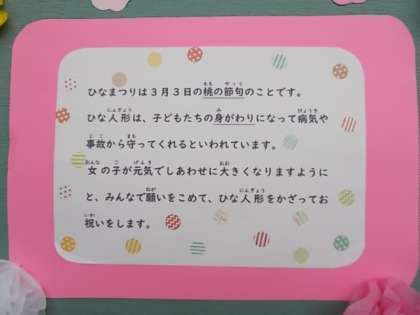 ひなまつりは３月３日の桃の節句のことです。
ひな人形は、子どもたちの身がわりになって病気や
事故から守ってくれるといわれています。
女の子が元気でしあわせに大きくなりますように
と、みんなで願いをこめて、ひな人形をかざってお
祝いをします。